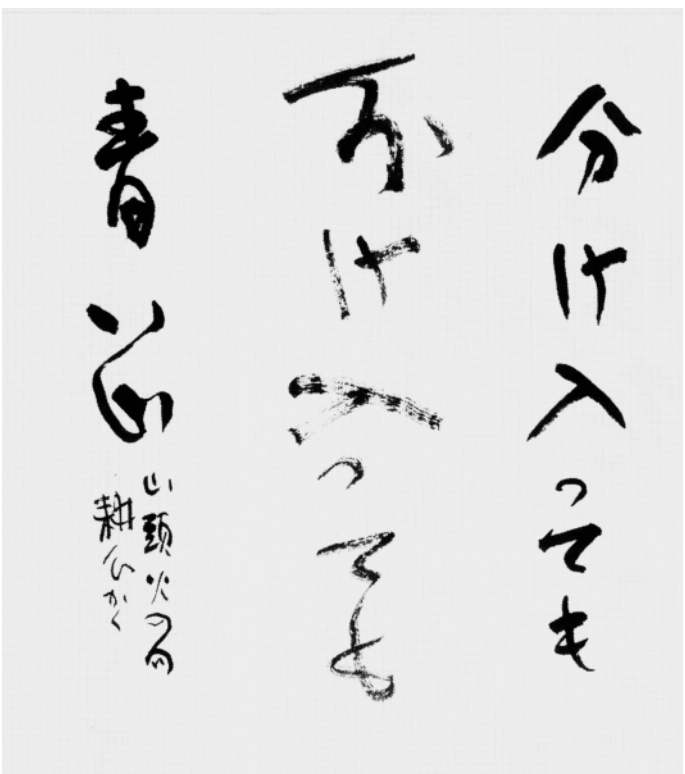 分け入っても
分け入っても
青い山
山頭火の句
耕 かく